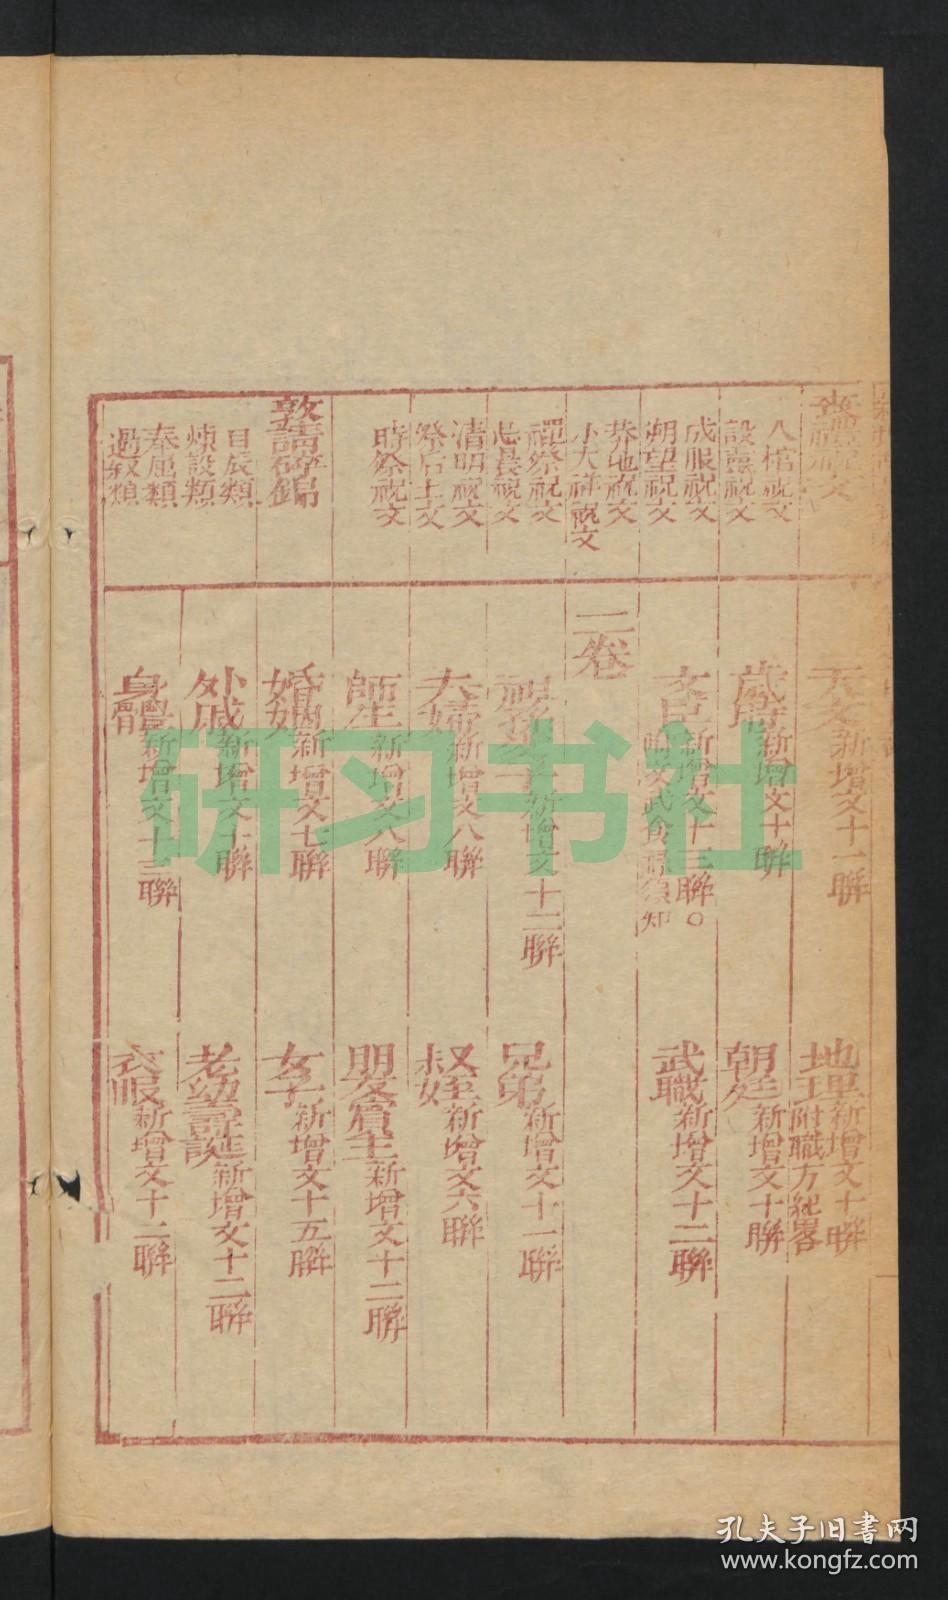 喪禮祝文
入棺祝文
設靈祝文
成服祝文
朔望祝文
葬地祝文
小大祥祝文
禫祭祝文
忌晨祝文
清明祝文
祭后土文
時祭祝文
敦請碎錦
日辰類
煉設類
奉屈類
過叙類
天文新增文十一聯
地理新增文十聯
附職方紀畧
歲時新增文十聯
朝廷新增文十聯
文臣新增文十三聯○
武職新增文十二聯
二卷
祖孫父子新增文十二聯
兄弟新增文十一聯
夫婦新增文八聯
叔姪新增文六聯
師生新增文八聯
朋友賓主新增文十二聯
婚姻新增文七聯
女子新增文十五聯
外戚新增文十聯
老幼壽誕新增文十二聯
身體新增文十三聯
衣服新增文十二聯
研习书社
孔夫子旧書网
www.kongfz.com